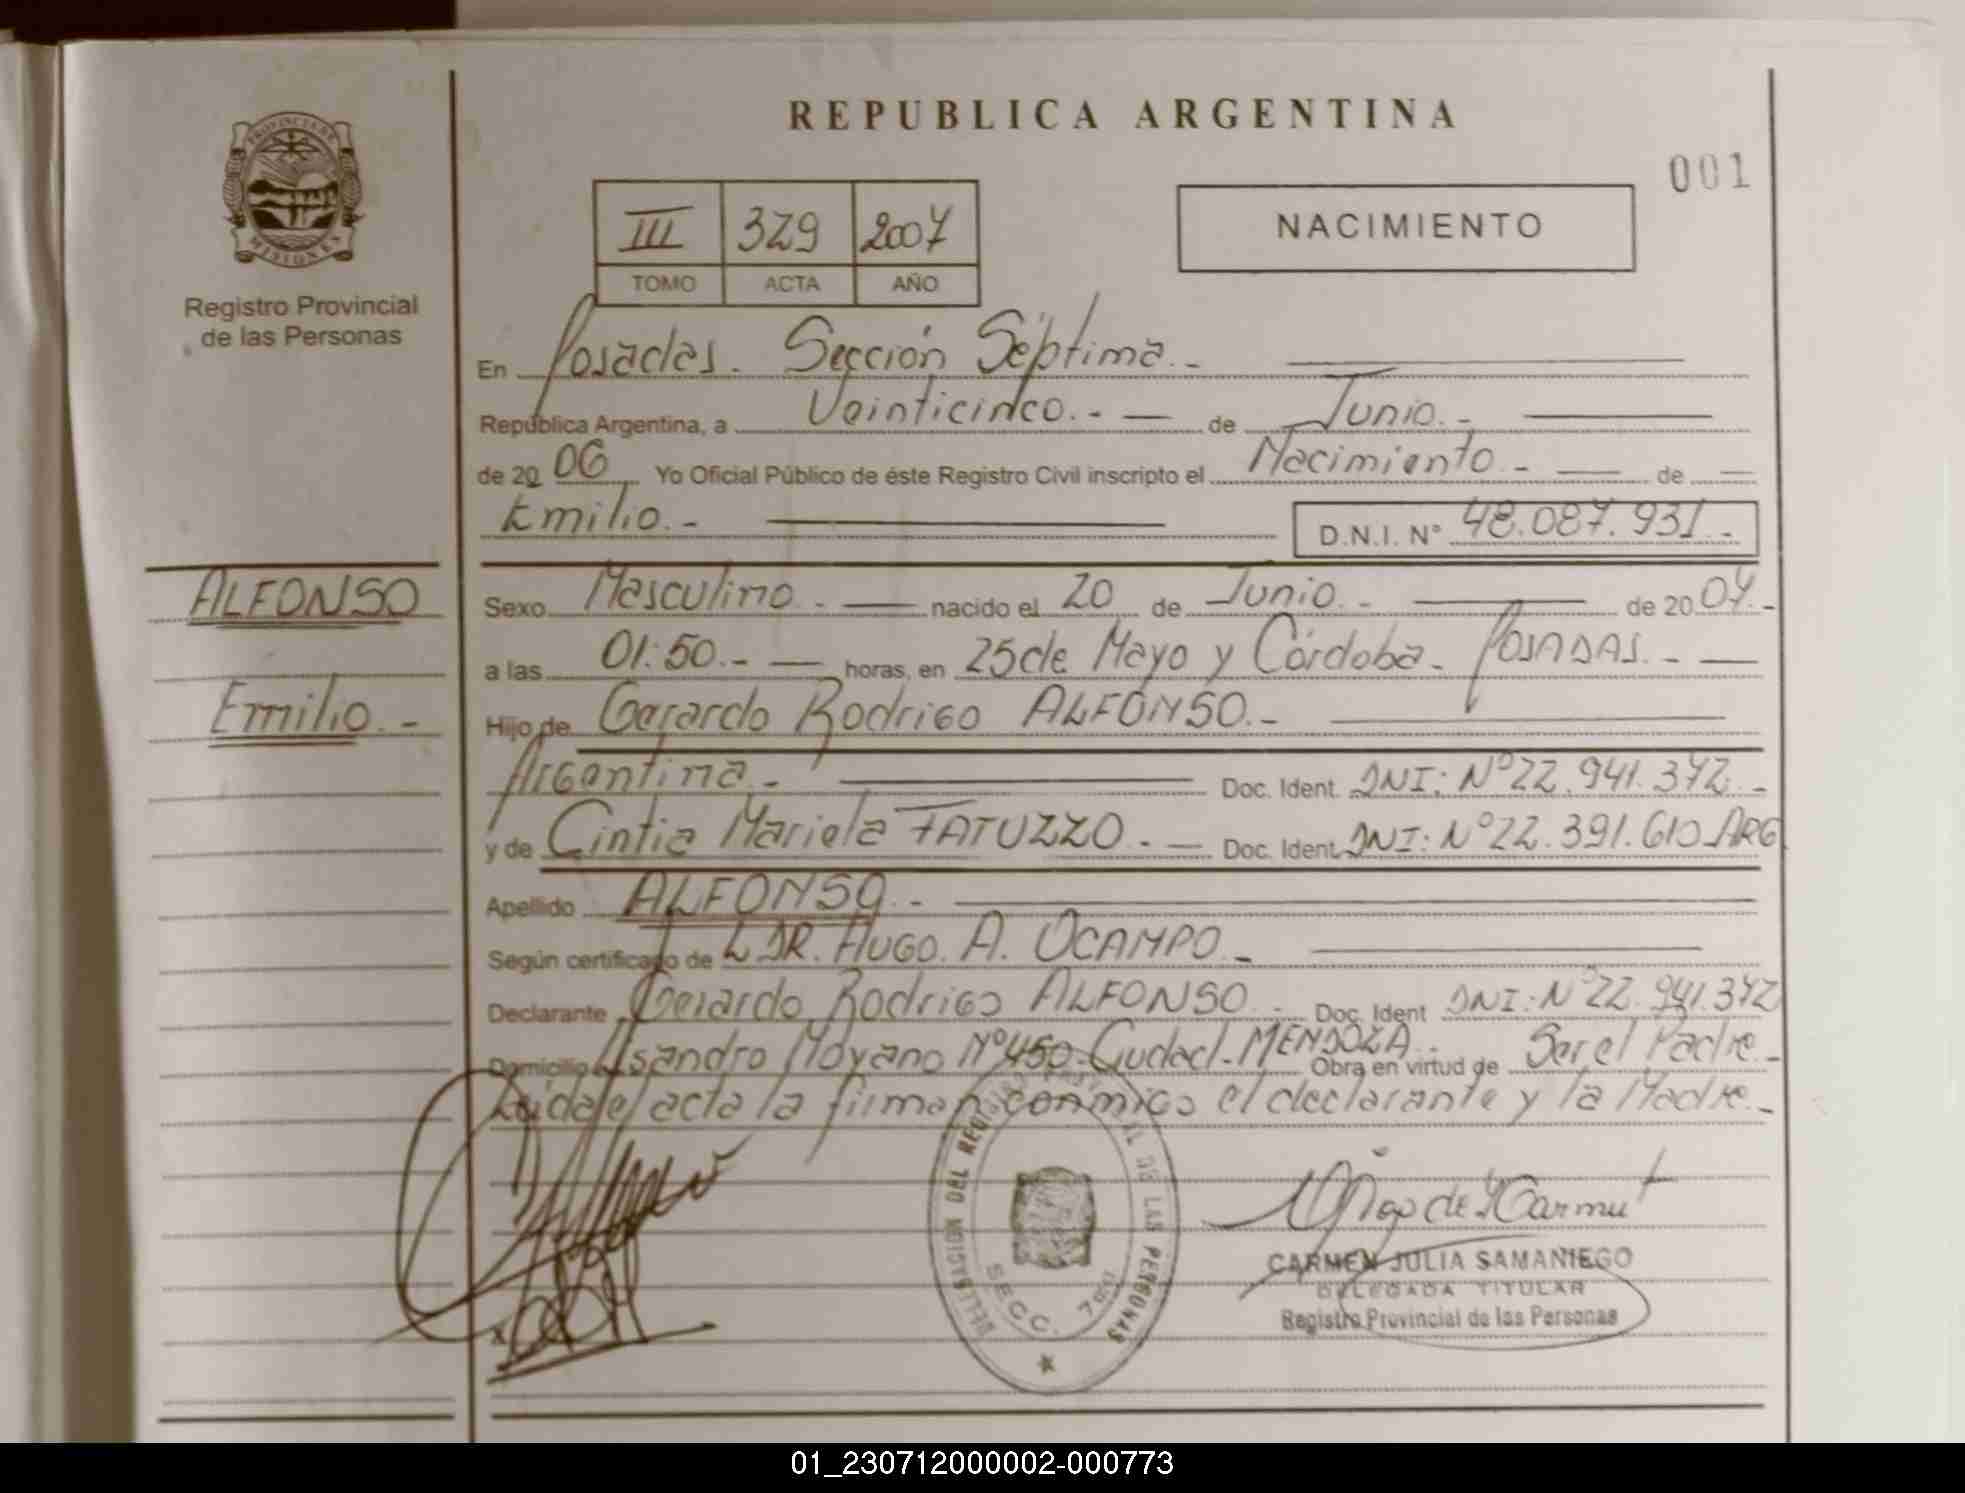 REPUBLICA ARGENTINA
001
PROVINCIA DE MISIONES
Registro Provincial
de las Personas
III 329 2007
TOMO ACTA AÑO
NACIMIENTO
En Posadas. Sección Séptima.-
República Argentina, a Veinticinco.- de Junio.-
de 20 06 Yo Oficial Público de éste Registro Civil inscripto el Nacimiento.- de
Emilio.- D.N.I. Nº 48.087.931.-
ALFONSO
Emilio.-
Sexo Masculino.- nacido el 20 de Junio.- de 20 07.-
a las 01:50.- horas, en 25 de Mayo y Córdoba. POSADAS.-
Hijo de Gerardo Rodrigo ALFONSO.-
Argentina.- Doc. Ident. DNI: Nº 22.941.372.-
y de Cintia Mariela FATUZZO.- Doc. Ident. DNI: Nº 22.391.610 ARG
Apellido ALFONSO.-
Según certificado de DR. HUGO. A. OCAMPO.-
Declarante Gerardo Rodrigo ALFONSO.- Doc. Ident DNI: Nº 22.941.372
Domicilio Lisandro Moyano Nº 450. Ciudad. MENDOZA.- Obra en virtud de Ser el Padre.-
Leída el acta la firman conmigo el declarante y la Madre.-
DELEGACION DEL REGISTRO PROVINCIAL DE LAS PERSONAS
SECC. 7
CARMEN JULIA SAMANIEGO
DELEGADA TITULAR
Registro Provincial de las Personas
01_230712000002-000773